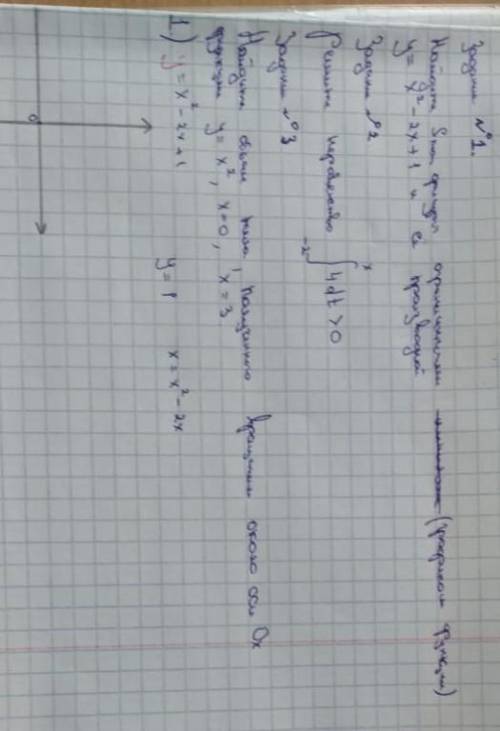 Задача №1.
Найдите S пл. фигуры ограниченной (графиком функции)
y = x² - 2x + 1 и её производной
Задача №2
Решите неравенство ∫₋₂ˣ 4dt > 0
Задача №3
Найдите объем тела, полученного вращением около оси Ox
функции y = x², x = 0, x = 3.
1) y = x² - 2x + 1 y = 1 x = x² - 2x
0